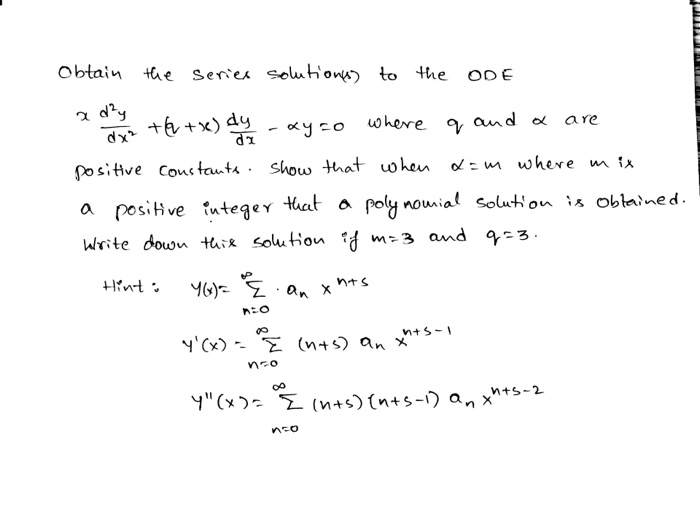 Obtain the series solution(s) to the ODE
x d²y/dx² + (q+x) dy/dx - αy = 0 where q and α are
positive constants. Show that when α = m where m is
a positive integer that a polynomial solution is obtained.
Write down this solution if m=3 and q=3.
Hint: y(x) = ∑_{n=0}^{∞} · a_n x^{n+s}
y'(x) = ∑_{n=0}^{∞} (n+s) a_n x^{n+s-1}
y''(x) = ∑_{n=0}^{∞} (n+s)(n+s-1) a_n x^{n+s-2}